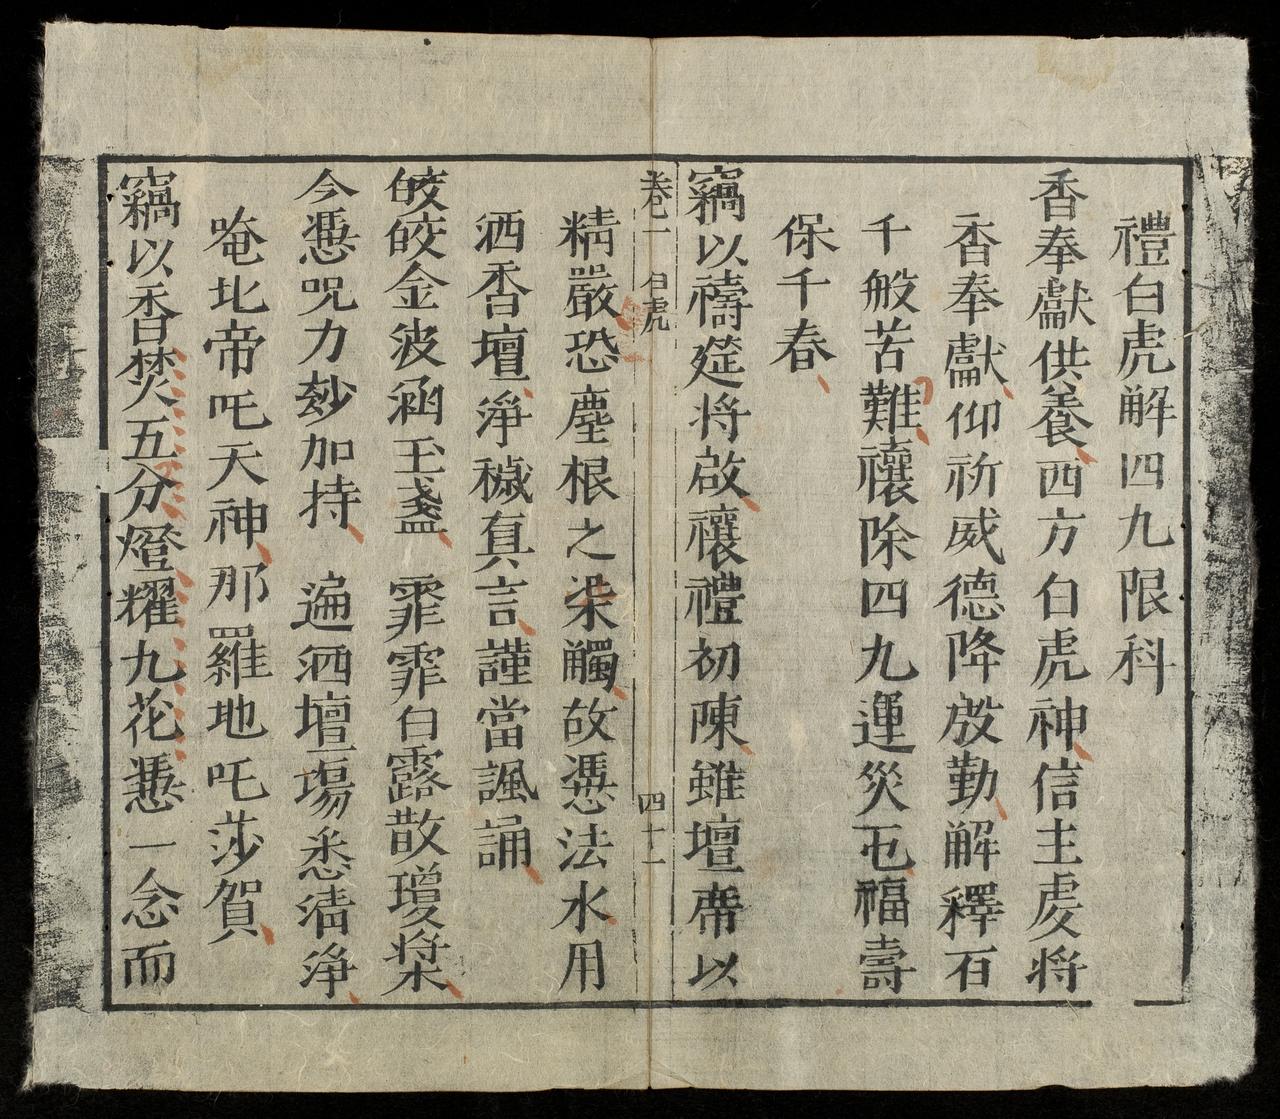 禮白虎解四九限科
香奉獻供養西方白虎神信主虔将
香奉獻仰祈威德降慇勤解釋石
千般苦難禳除四九運災屯福壽
保千春
竊以禱筵将啟禳禮初陳雖壇帝以
卷一 白虎 四十一
精嚴恐塵根之染觸故憑法水用
洒香壇淨穢真言謹當諷誦
皎皎金波涵玉盞 霏霏白露散瓊漿
今憑呪力玅加持 遍洒壇塲悉清淨
唵北帝吒天神那羅地吒莎賀
竊以香焚五分燈耀九花憑一念而